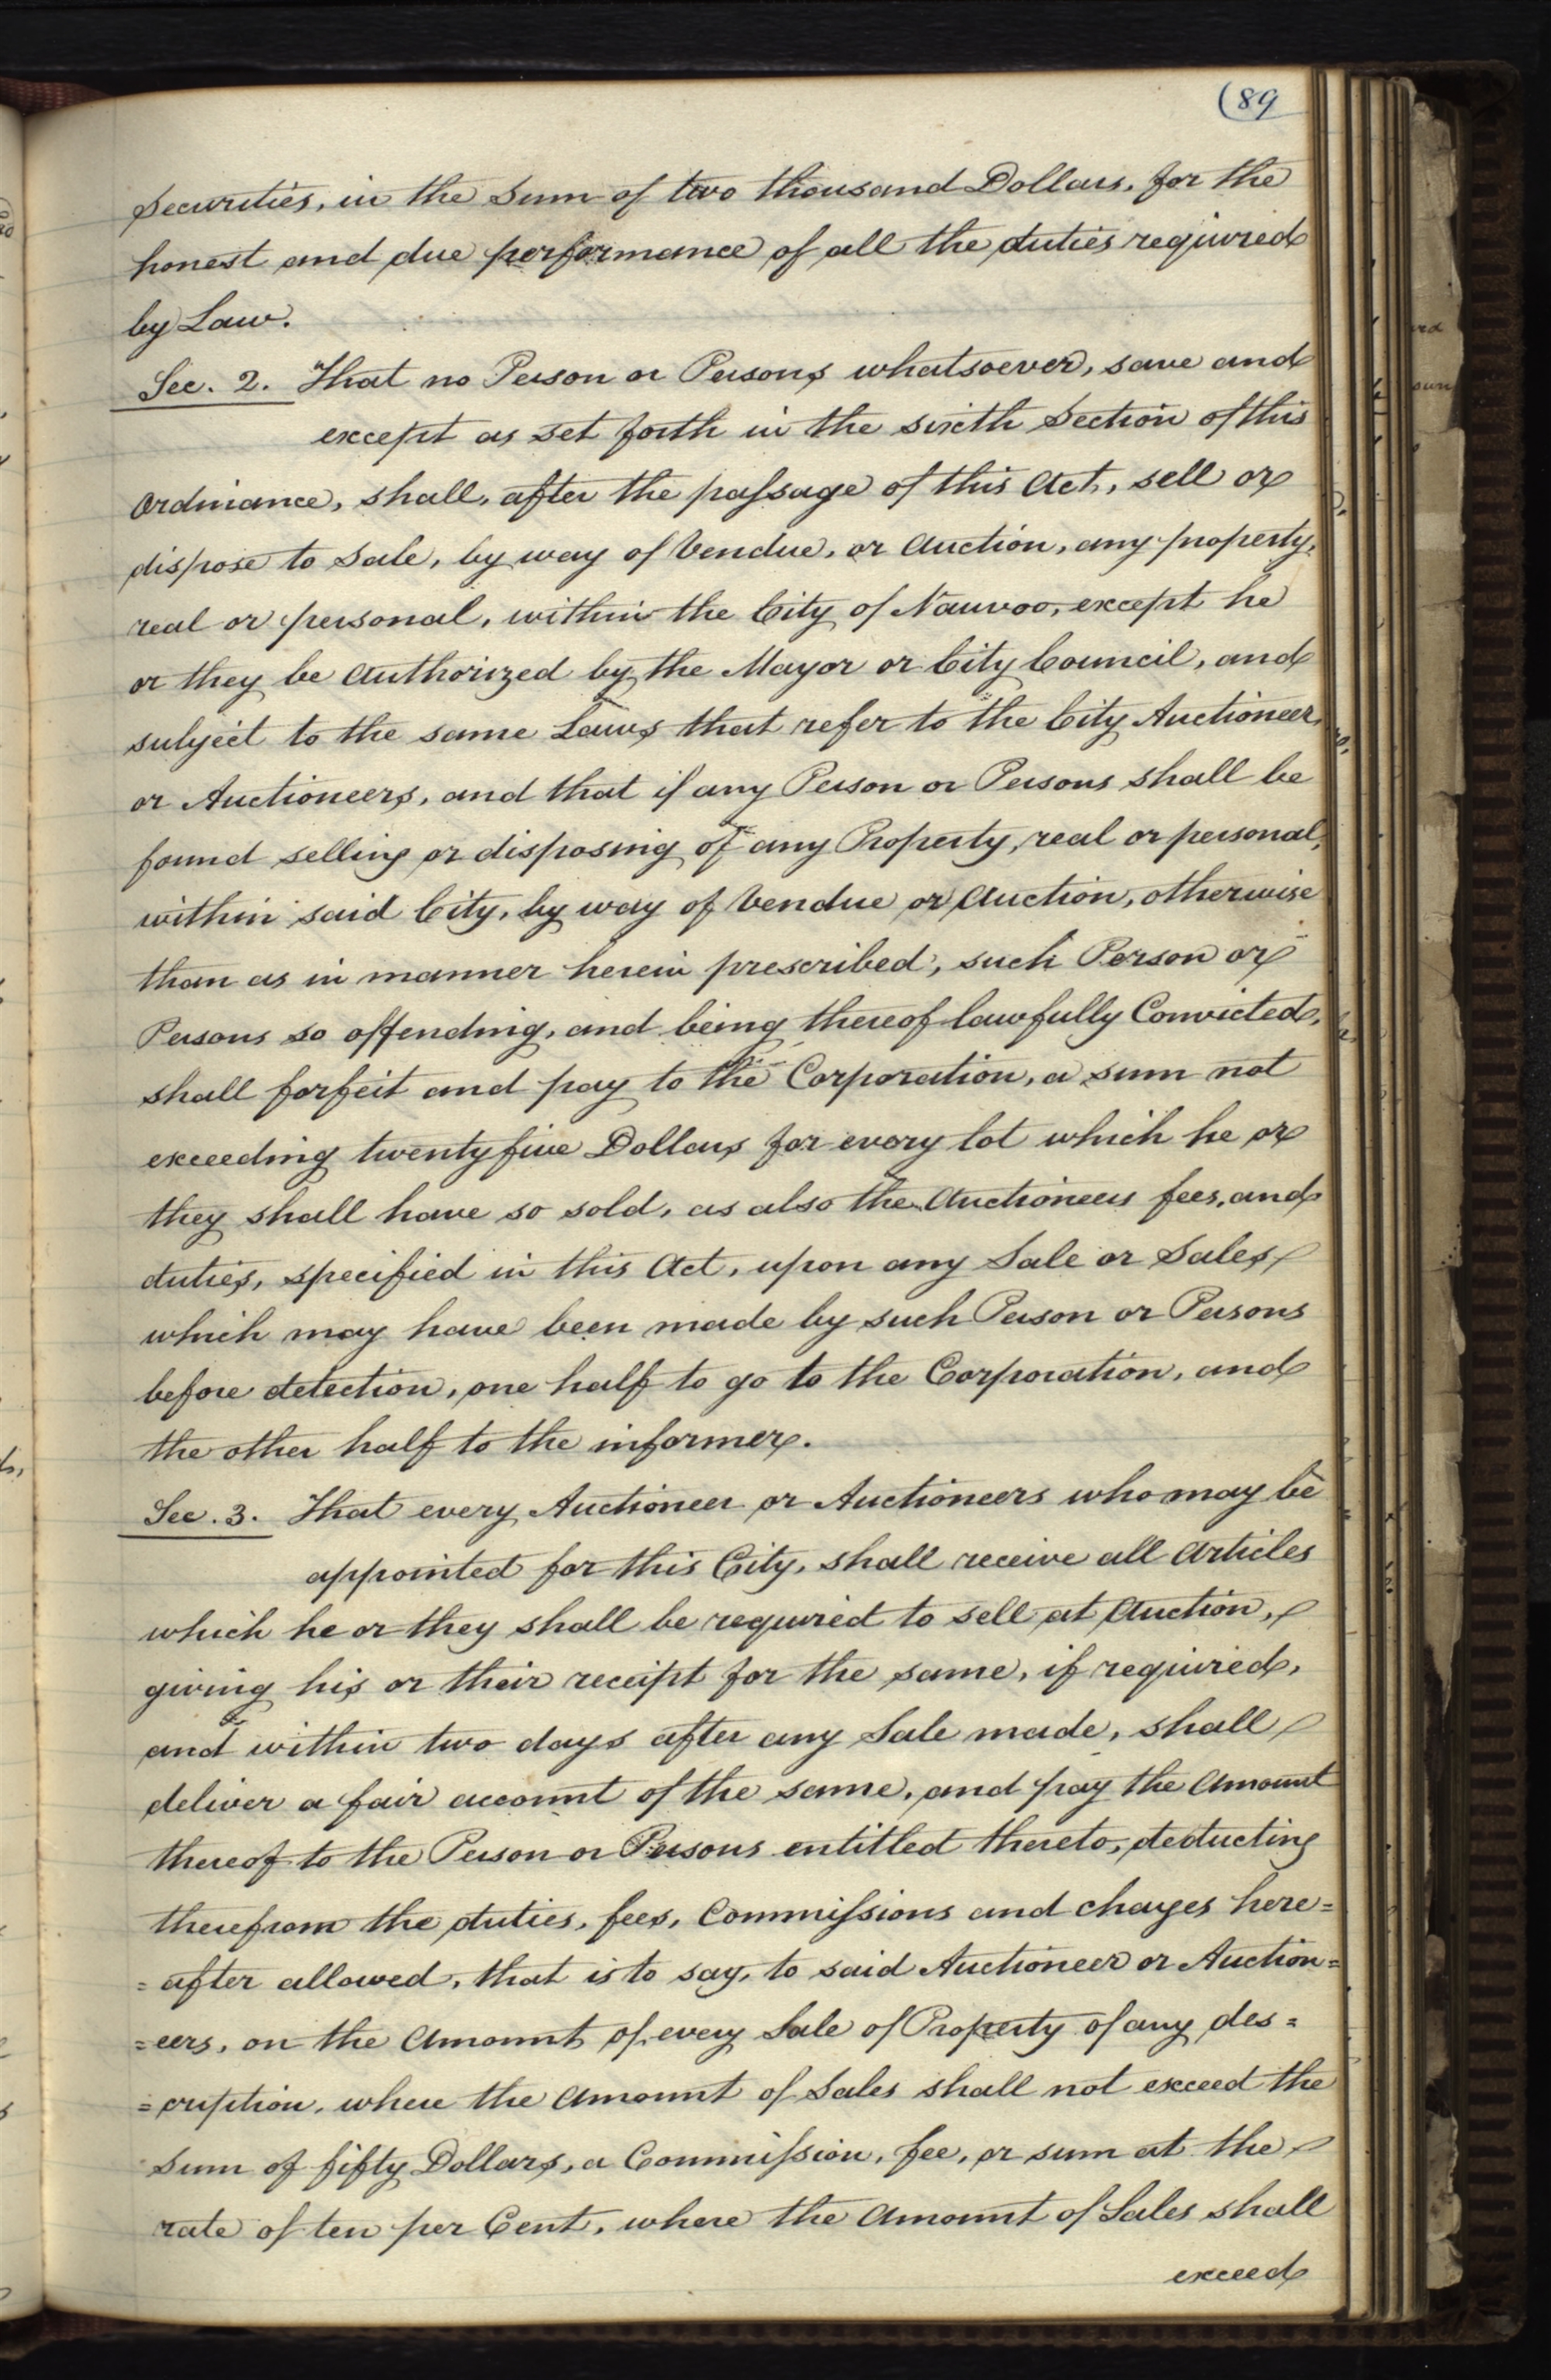 (89
Securities, in the Sum of two thousand Dollars, for the
honest and due performance of all the duties required
by Law.
Sec. 2. That no Person or Persons whatsoever, save and
except as set forth in the sixth Section of this
Ordinance, shall, after the passage of this Act, sell or
dispose to Sale, by way of Vendue, or Auction, any property,
real or personal, within the City of Nauvoo, except he
or they be Authorized by the Mayor or City Council, and
subject to the same Laws that refer to the City Auctioneer,
or Auctioneers, and that if any Person or Persons shall be
found selling or disposing of any Property, real or personal,
within said City, by way of Vendue or Auction, otherwise
than as in manner herein prescribed, such Person or
Persons so offending, and being thereof lawfully Convicted,
shall forfeit and pay to the Corporation, a sum not
exceeding twenty five Dollars for every lot which he or
they shall have so sold, as also the Auctioneers fees, and
duties, specified in this Act, upon any Sale or Sales
which may have been made by such Person or Persons
before detection, one half to go to the Corporation, and
the other half to the informer.
Sec. 3. That every Auctioneer or Auctioneers who may be
appointed for this City, shall receive all Articles
which he or they shall be required to sell at Auction,
giving his or their receipt for the same, if required,
and within two days after any Sale made, shall
deliver a fair account of the same, and pay the Amount
thereof to the Person or Persons entitled thereto, deducting
therefrom the duties, fees, Commissions and charges here=
=after allowed, that is to say, to said Auctioneer or Auction=
=eers, on the Amount of every Sale of Property of any des=
=cription, where the Amount of Sales shall not exceed the
Sum of fifty Dollars, a Commission, fee, or sum at the
rate of ten per Cent, where the Amount of Sales shall
exceed